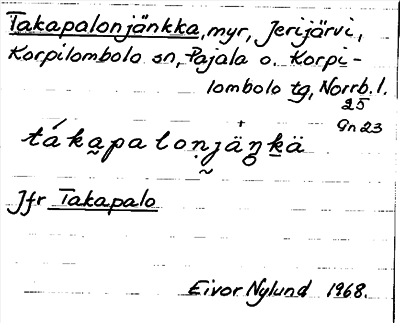 Takapalonjänkka, myr, Jerijärvi,
Korpilombolo sn, Pajala o. Korpi-
lombolo tg, Norrb. l.
25
Gn 23
tákapalonjäŋkä
Jfr Takapalo
Eivor Nylund 1968.